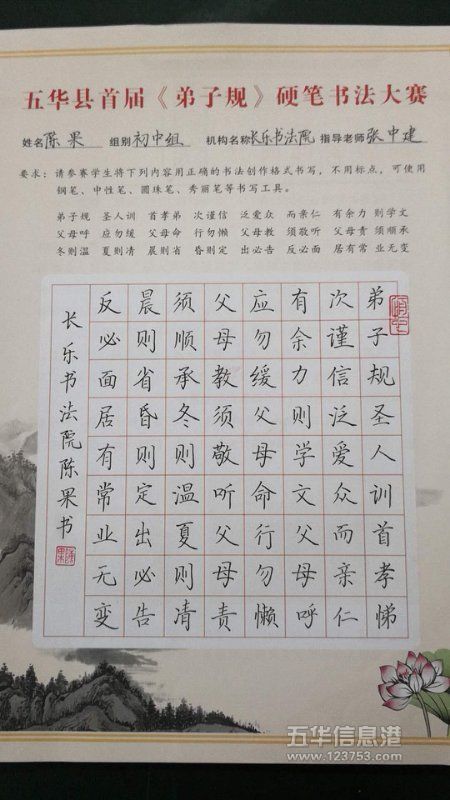 五华县首届《弟子规》硬笔书法大赛
姓名 陈果 组别 初中组 机构名称 长乐书法院 指导老师 张中建
要求：请参赛学生将下列内容用正确的书法创作格式书写，不用标点，可使用
钢笔、中性笔、圆珠笔、秀丽笔等书写工具。
弟子规 圣人训 首孝弟 次谨信 泛爱众 而亲仁 有余力 则学文
父母呼 应勿缓 父母命 行勿懒 父母教 须敬听 父母责 须顺承
冬则温 夏则清 晨则省 昏则定 出必告 反必面 居有常 业无变
弟子规圣人训首孝悌
次谨信泛爱众而亲仁
有余力则学文父母呼
应勿缓父母命行勿懒
父母教须敬听父母责
须顺承冬则温夏则凊
晨则省昏则定出必告
反必面居有常业无变
长乐书法院陈果书
五华信息港
www.123753.com